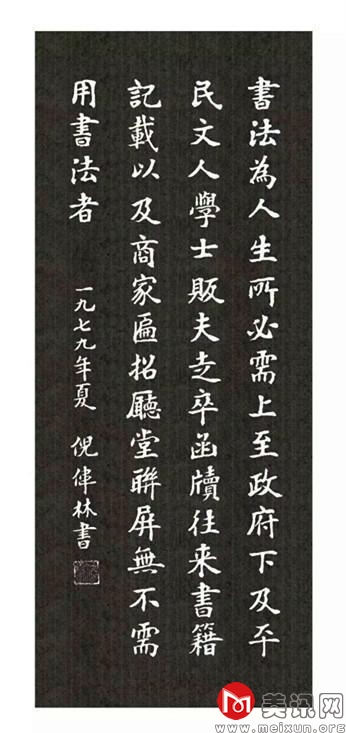 書法為人生所必需上至政府下及平
民文人學士販夫走卒函牘往来書籍
記載以及商家匾招廳堂聯屏無不需
用書法者
一九七九年夏 倪偉林書
美讯网
www.meixun.org